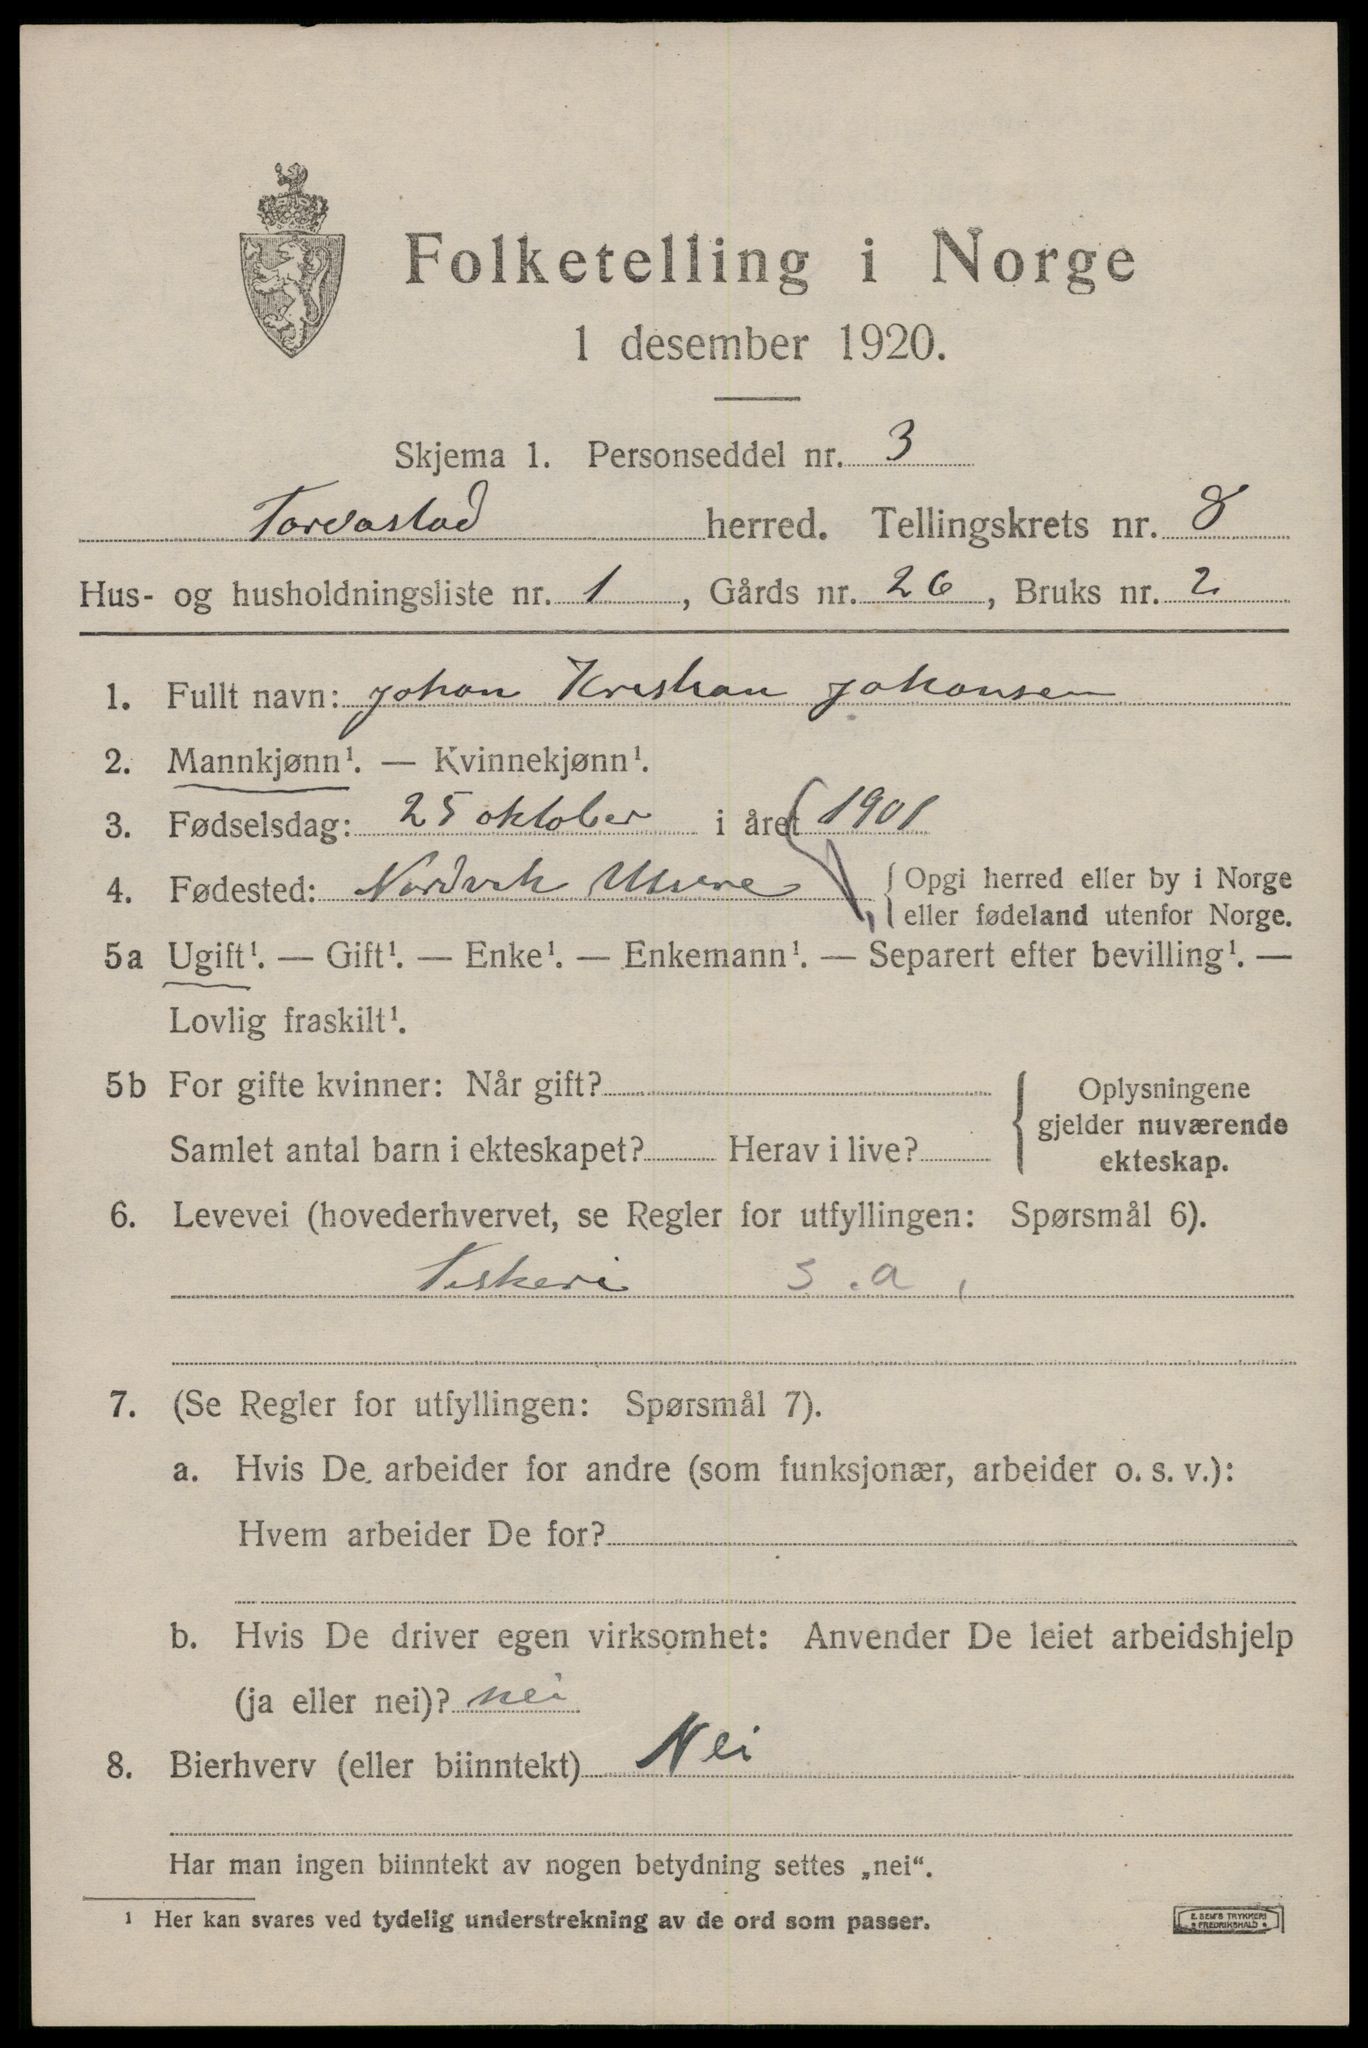 Folketelling i Norge
1 desember 1920.
Skjema 1. Personseddel nr. 3
Torvastad herred. Tellingskrets nr. 8
Hus- og husholdningsliste nr. 1, Gårds nr. 26, Bruks nr. 2
1. Fullt navn: Johan Kristian Johansen
2. Mannkjønn¹. — Kvinnekjønn¹.
3. Fødselsdag: 25 oktober i året 1901
4. Fødested: Nordvik Utsire { Opgi herred eller by i Norge
eller fødeland utenfor Norge.
5a Ugift¹. — Gift¹. — Enke¹. — Enkemann¹. — Separert efter bevilling¹. —
Lovlig fraskilt¹.
5b For gifte kvinner: Når gift? { Oplysningene
gjelder nuværende
Samlet antal barn i ekteskapet? Herav i live? ekteskap.
6. Levevei (hovederhvervet, se Regler for utfyllingen: Spørsmål 6).
Fiskeri s.a,
7. (Se Regler for utfyllingen: Spørsmål 7).
a. Hvis De arbeider for andre (som funksjonær, arbeider o. s. v.):
Hvem arbeider De for?
b. Hvis De driver egen virksomhet: Anvender De leiet arbeidshjelp
(ja eller nei)? nei
8. Bierhverv (eller biinntekt) Nei
Har man ingen biinntekt av nogen betydning settes „nei“.
¹ Her kan svares ved tydelig understrekning av de ord som passer.
E. SEM'S TRYKKERI
FREDRIKSHALD